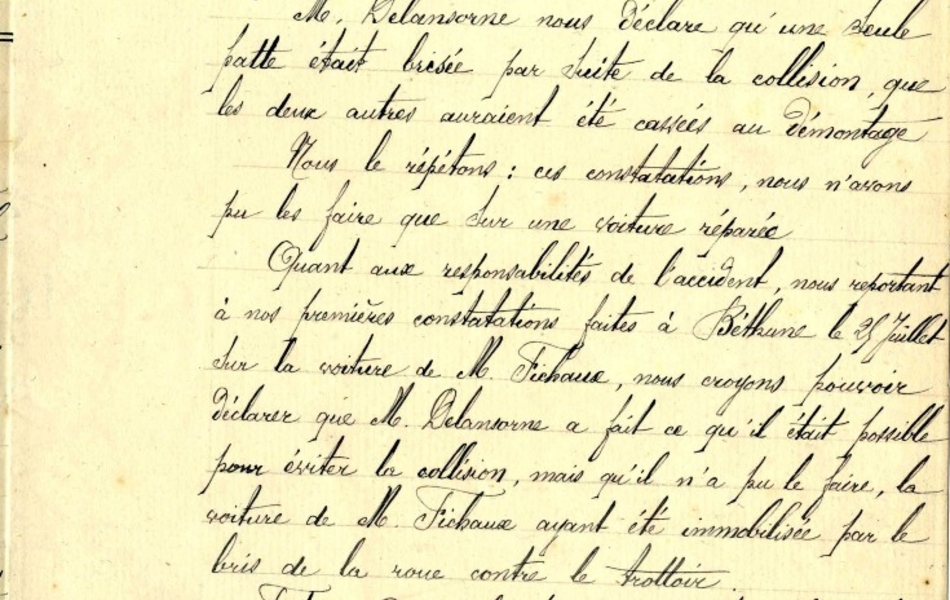 M. Delansorne nous déclare qu'une seule
patte était brisée par suite de la collision, que
les deux autres auraient été cassées au démontage
Nous le répétons : ces constatations, nous n'avons
pu les faire que sur une voiture réparée
Quant aux responsabilités de l'accident, nous reportant
à nos premières constatations faites à Béthune le 25 Juillet
sur la voiture de M. Fichaux, nous croyons pouvoir
déclarer que M. Delansorne a fait ce qu'il était possible
pour éviter la collision, mais qu'il n'a pu le faire, la
voiture de M. Fichaux ayant été immobilisée par le
bris de la roue contre le trottoir.